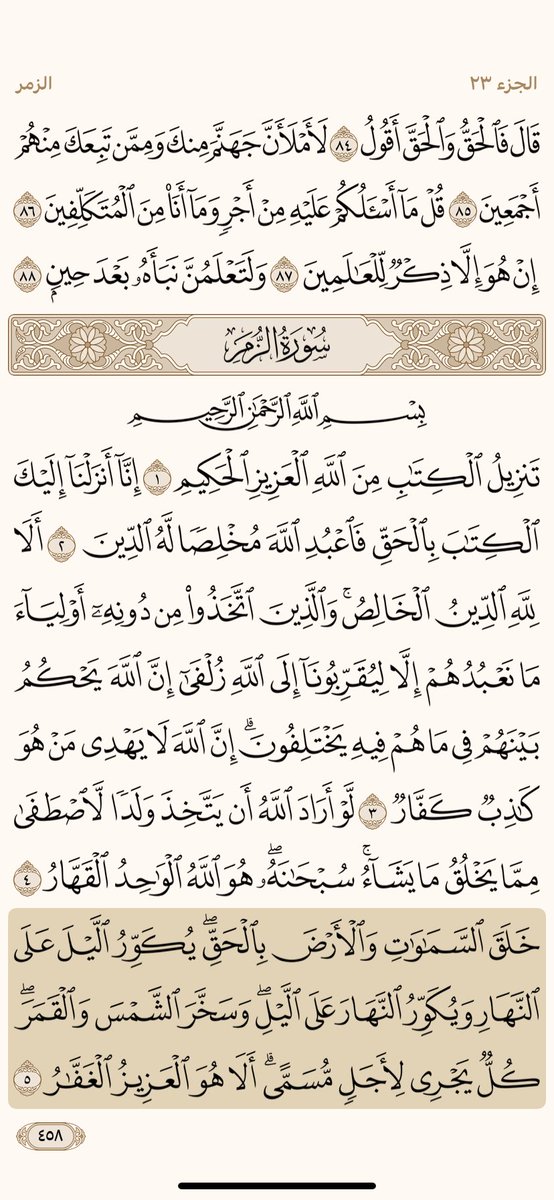 الجزء ٢٣
الزمر
قَالَ فَٱلْحَقُّ وَٱلْحَقَّ أَقُولُ ٨٤ لَأَمْلَأَنَّ جَهَنَّمَ مِنكَ وَمِمَّن تَبِعَكَ مِنْهُمْ
أَجْمَعِينَ ٨٥ قُلْ مَآ أَسْـَٔلُكُمْ عَلَيْهِ مِنْ أَجْرٍ وَمَآ أَنَا۠ مِنَ ٱلْمُتَكَلِّفِينَ ٨٦
إِنْ هُوَ إِلَّا ذِكْرٌ لِّلْعَـٰلَمِينَ ٨٧ وَلَتَعْلَمُنَّ نَبَأَهُۥ بَعْدَ حِينٍۭ ٨٨
سُورَةُ الزُّمَرِ
بِسْمِ ٱللَّهِ ٱلرَّحْمَـٰنِ ٱلرَّحِيمِ
تَنزِيلُ ٱلْكِتَـٰبِ مِنَ ٱللَّهِ ٱلْعَزِيزِ ٱلْحَكِيمِ ١ إِنَّآ أَنزَلْنَآ إِلَيْكَ
ٱلْكِتَـٰبَ بِٱلْحَقِّ فَٱعْبُدِ ٱللَّهَ مُخْلِصًا لَّهُ ٱلدِّينَ ٢ أَلَا
لِلَّهِ ٱلدِّينُ ٱلْخَالِصُ ۚ وَٱلَّذِينَ ٱتَّخَذُوا۟ مِن دُونِهِۦٓ أَوْلِيَآءَ
مَا نَعْبُدُهُمْ إِلَّا لِيُقَرِّبُونَآ إِلَى ٱللَّهِ زُلْفَىٰٓ إِنَّ ٱللَّهَ يَحْكُمُ
بَيْنَهُمْ فِى مَا هُمْ فِيهِ يَخْتَلِفُونَ ۗ إِنَّ ٱللَّهَ لَا يَهْدِى مَنْ هُوَ
كَـٰذِبٌ كَفَّارٌ ٣ لَّوْ أَرَادَ ٱللَّهُ أَن يَتَّخِذَ وَلَدًا لَّٱصْطَفَىٰ
مِمَّا يَخْلُقُ مَا يَشَآءُ ۚ سُبْحَـٰنَهُۥ ۖ هُوَ ٱللَّهُ ٱلْوَٰحِدُ ٱلْقَهَّارُ ٤
خَلَقَ ٱلسَّمَـٰوَٰتِ وَٱلْأَرْضَ بِٱلْحَقِّ ۖ يُكَوِّرُ ٱلَّيْلَ عَلَى
ٱلنَّهَارِ وَيُكَوِّرُ ٱلنَّهَارَ عَلَى ٱلَّيْلِ ۖ وَسَخَّرَ ٱلشَّمْسَ وَٱلْقَمَرَ ۖ
كُلٌّ يَجْرِى لِأَجَلٍ مُّسَمًّى ۗ أَلَا هُوَ ٱلْعَزِيزُ ٱلْغَفَّـٰرُ ٥
٤٥٨